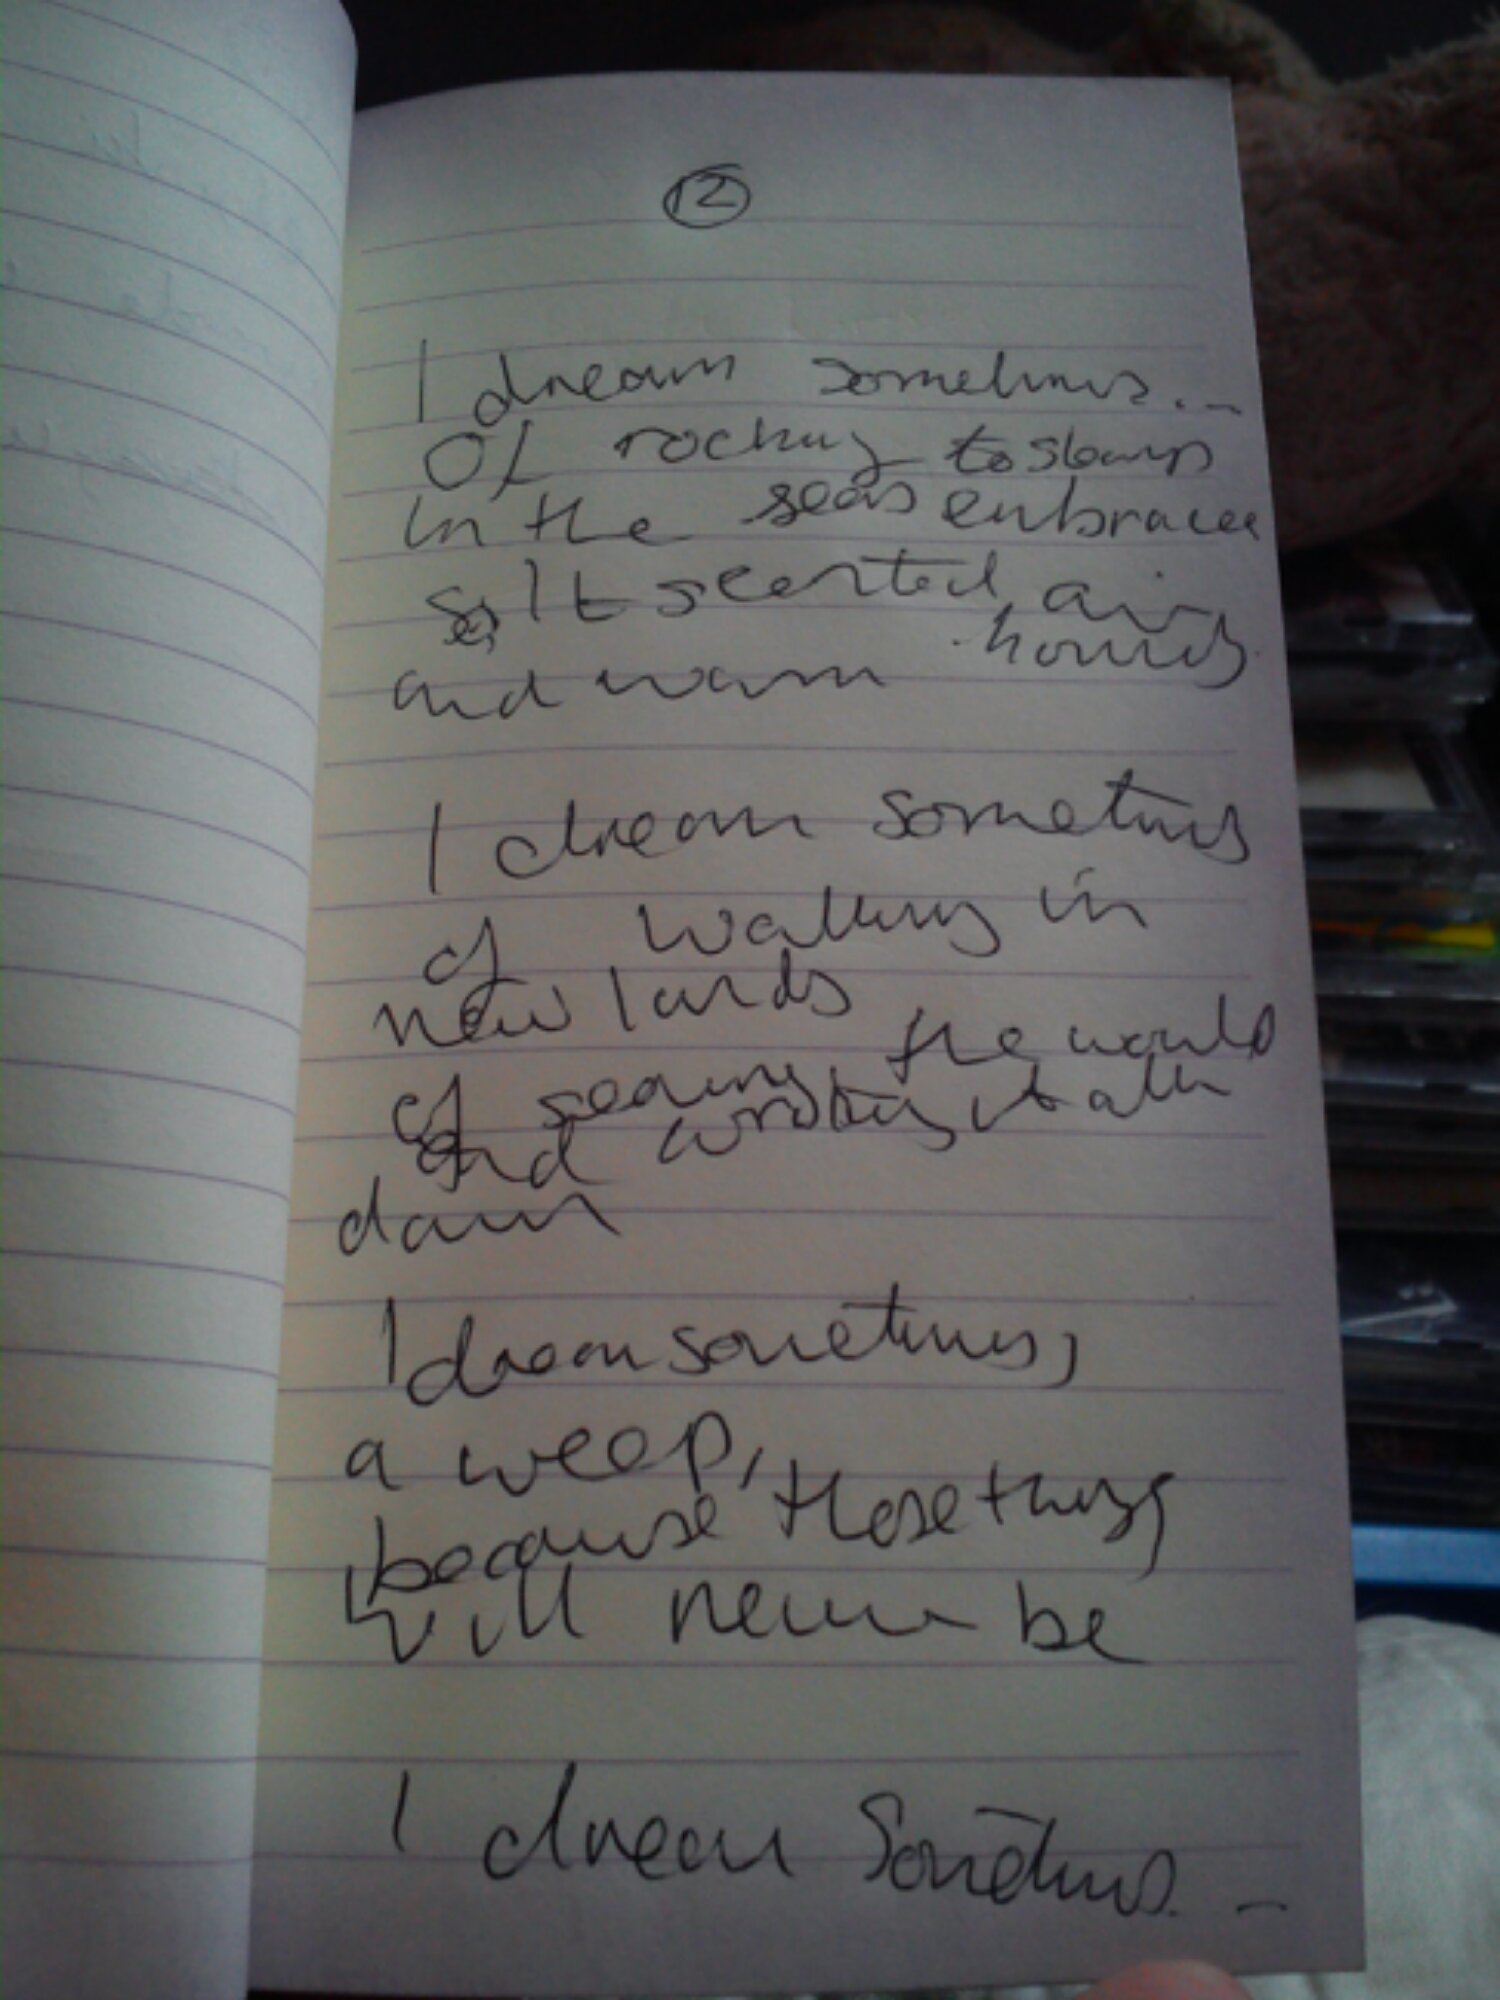 12
I dream sometimes...
Of rocking to sleep
In the seas embrace
salt scented air
and warm
I dream sometimes
of walking in
new lands
of seeing the world
and writing it all
down
I dream sometimes,
a weep,
because those things
will never be
I dream Sometimes...